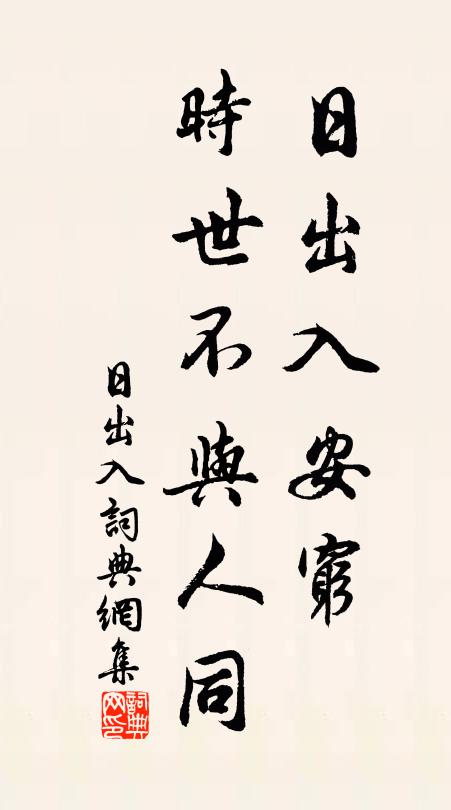 日出入安窮
時世不與人同
日出入詞典網集
詞典网印